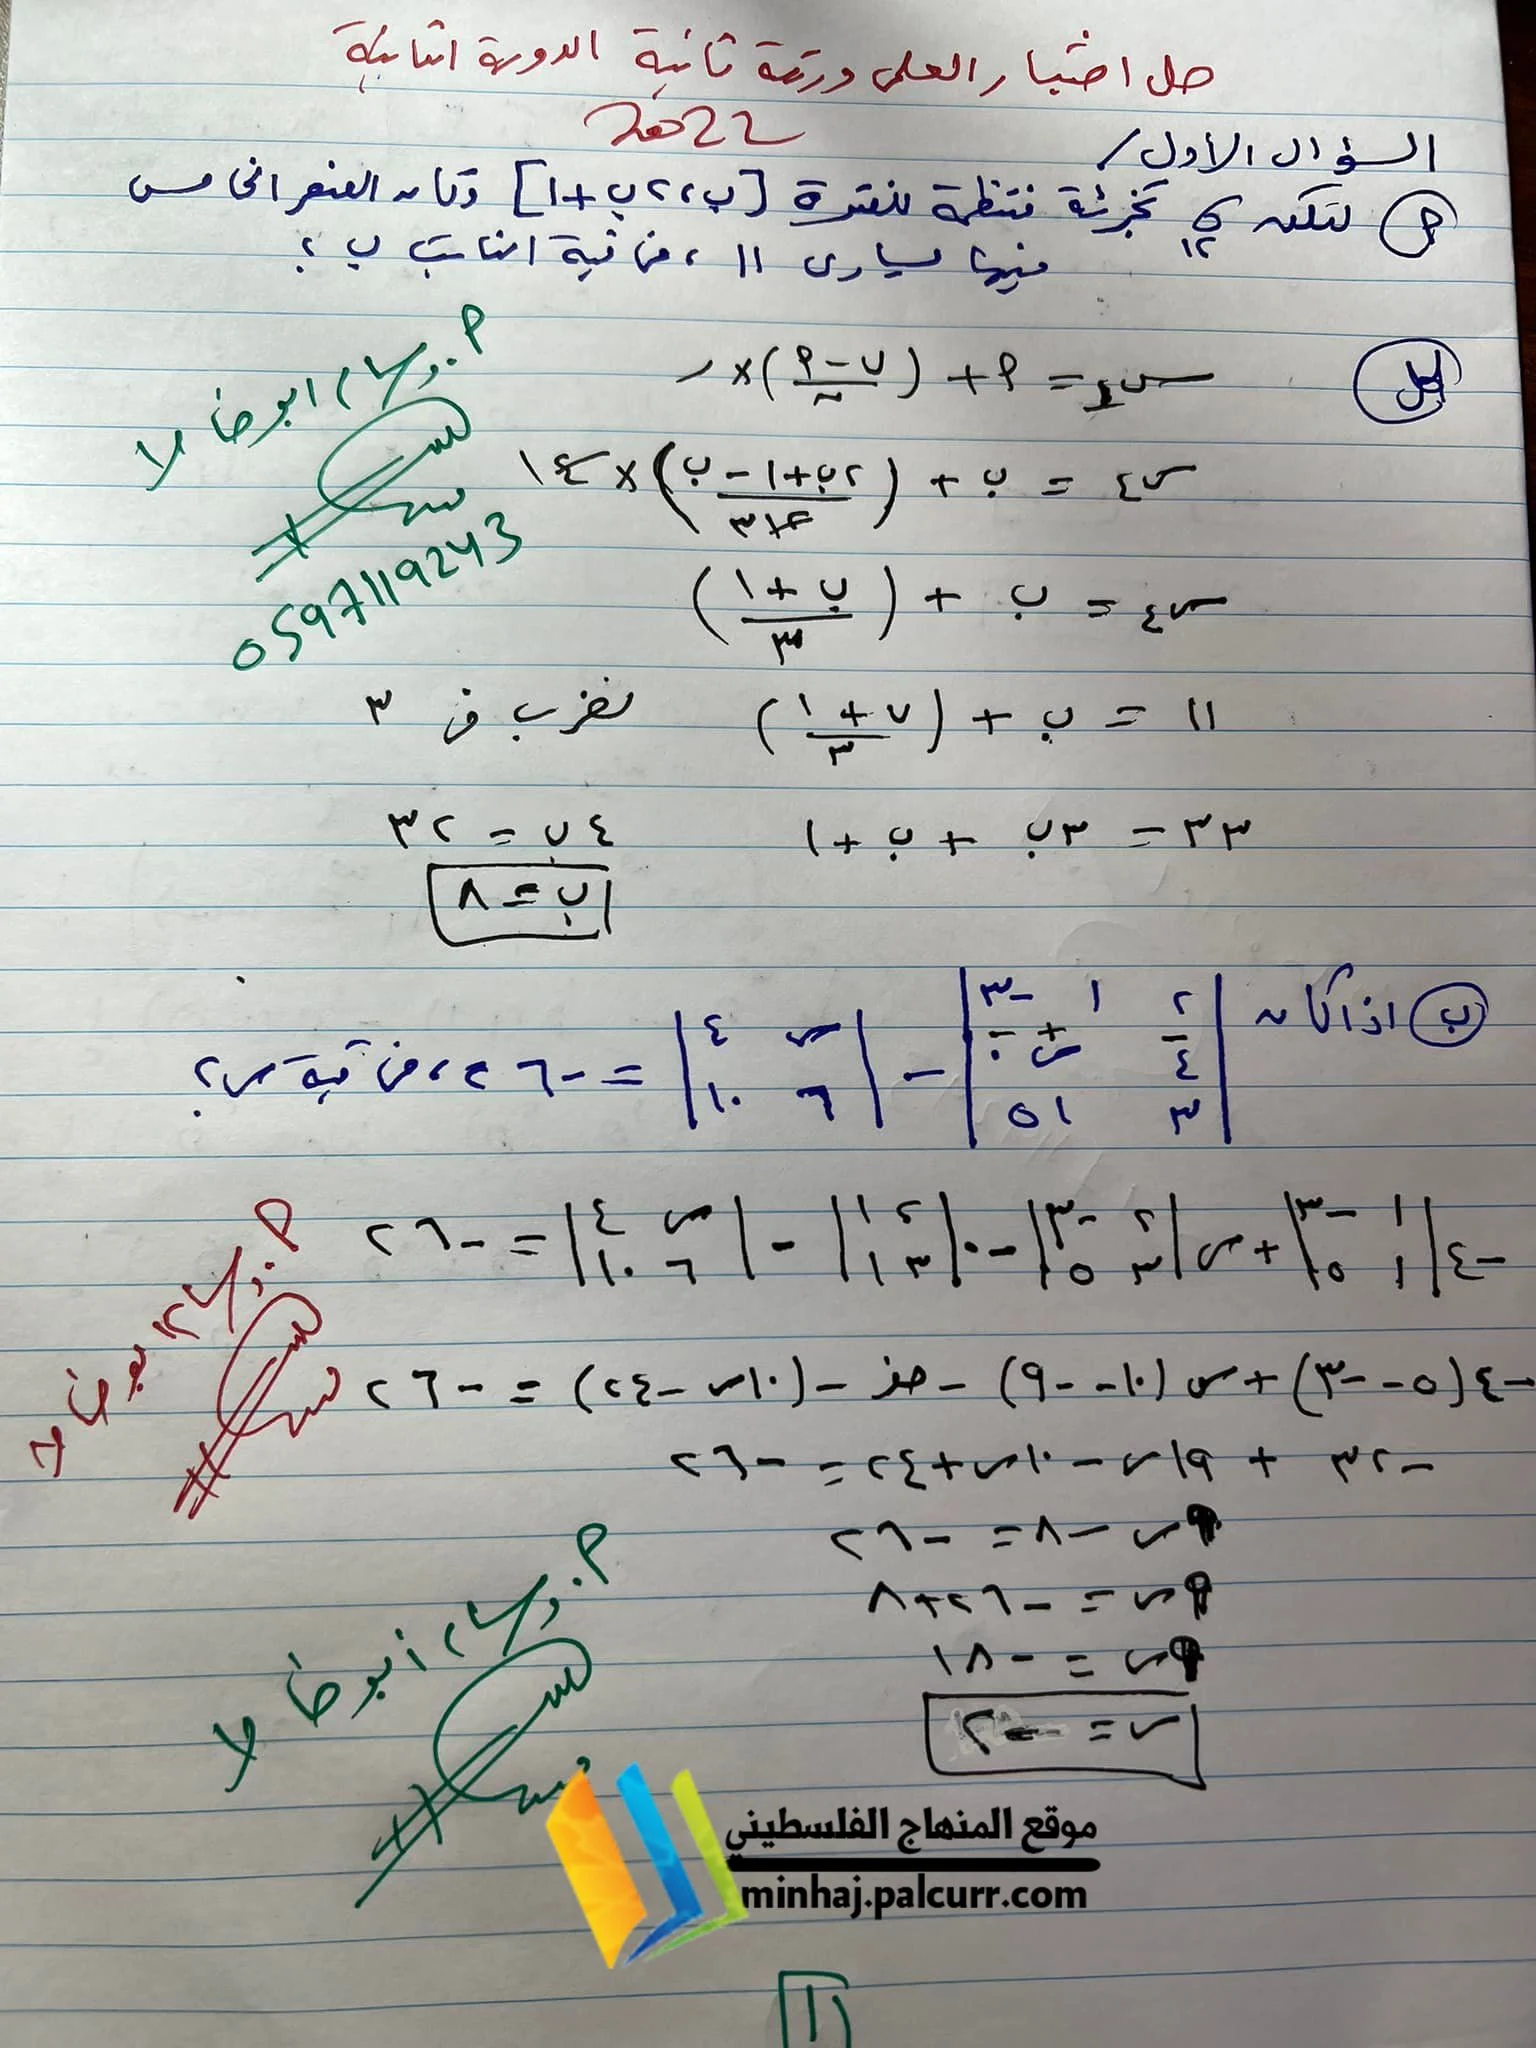 حل اختبار العلمي ورقة ثانية الدورة الثانية
2022
السؤال الأول /
P لتكن σ١٢ تجزئة منتظمة للفترة [ب، ٢ب+١] وكان العنصر الخامس
فيها يساوي ١١ ، فما قيمة الثابت ب ؟
الحل
س٤ = P + (ب - P / ن) × ر
س٤ = ب + (٢ب+١ - ب / ١٢ ٣) × ٤ ١
س٤ = ب + (ب + ١ / ٣)
١١ = ب + (ب + ١ / ٣) نضرب في ٣
٣٣ = ٣ب + ب + ١ ٤ب = ٣٢
ب = ٨
م. وسام ابو
0597119243
ب اذا كان |٢ ١ -٣ / ٤ س ٠ / ٣ ١ ٥| - |س ٤ / ٦ ١٠| = -٢٦ ، فما قيمة س ؟
-٤ |١ -٣ / ١ ٥| + س |٢ -٣ / ٣ ٥| - ٠ |٢ ١ / ٣ ١| - |س ٤ / ٦ ١٠| = -٢٦
-٤ (٥ - -٣) + س (١٠ - -٩) - صفر - (١٠س - ٢٤) = -٢٦
-٣٢ + ١٩س - ١٠س + ٢٤ = -٢٦
٩س - ٨ = -٢٦
٩س = -٢٦ + ٨
٩س = -١٨
س = -٢
م. وسام ابو
م. وسام أبو
موقع المنهاج الفلسطيني
minhaj.palcurr.com
١